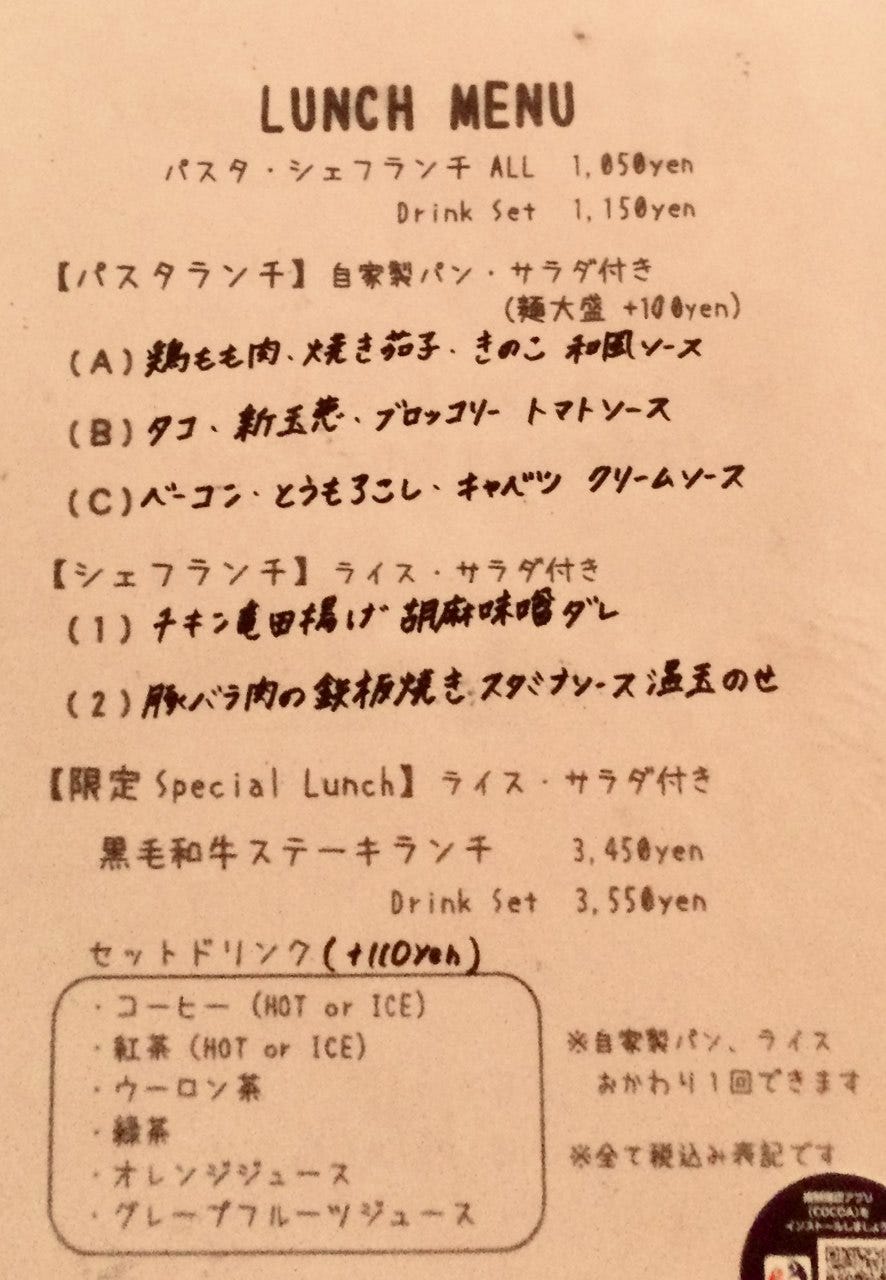 LUNCH MENU
パスタ・シェフランチ ALL 1,050yen
Drink Set 1,150yen
【パスタランチ】自家製パン・サラダ付き
(麺大盛 +100yen)
(A)鶏もも肉、焼き茄子・きのこ 和風ソース
(B)タコ、新玉葱、ブロッコリー トマトソース
(C)ベーコン・とうもろこし・キャベツ クリームソース
【シェフランチ】ライス・サラダ付き
(1)チキン竜田揚げ 胡麻味噌ダレ
(2)豚バラ肉の鉄板焼き スタミナソース 温玉のせ
【限定 Special Lunch】ライス・サラダ付き
黒毛和牛ステーキランチ 3,450yen
Drink Set 3,550yen
セットドリンク(+110yen)
・コーヒー (HOT or ICE)
・紅茶 (HOT or ICE)
・ウーロン茶
・緑茶
・オレンジジュース
・グレープフルーツジュース
※自家製パン、ライス
おかわり1回できます
※全て税込み表記です
接触確認アプリ
(COCOA)を
インストールしましょう